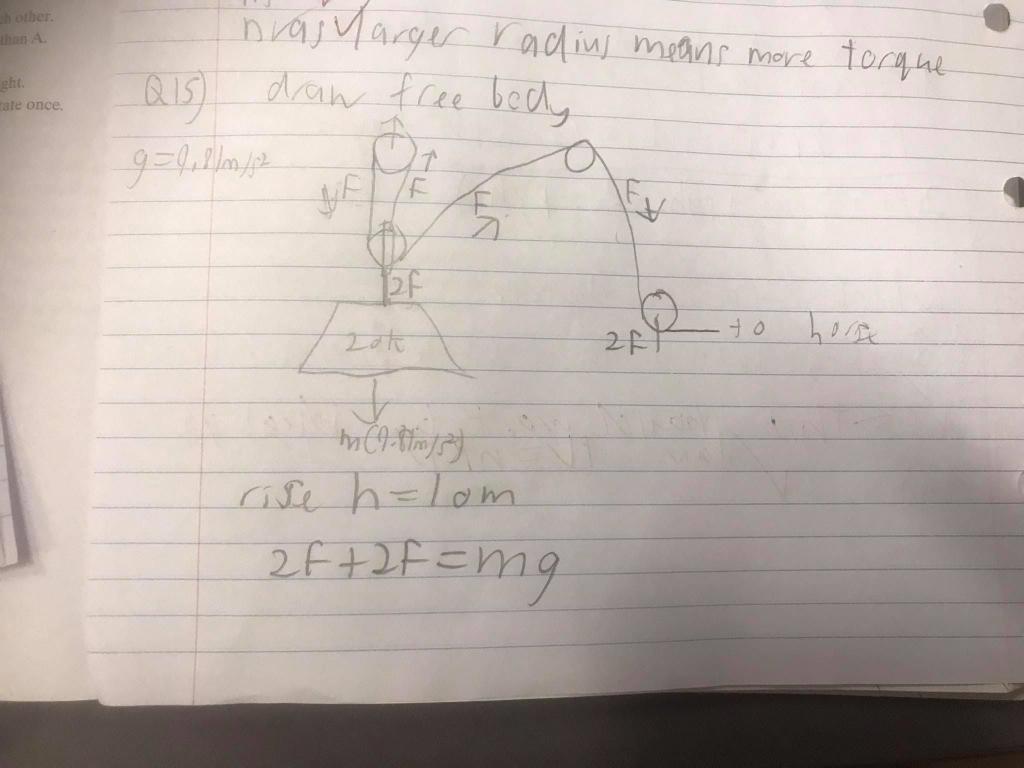 ch other.
than A.
ght.
ate once.
larger radius means more torque
Q15) draw free body
g=9.81m/s²
F
F
F
F
2F
20k
2F
to horse
m(9.81m/s²)
rise h=10m
2F+2F=mg